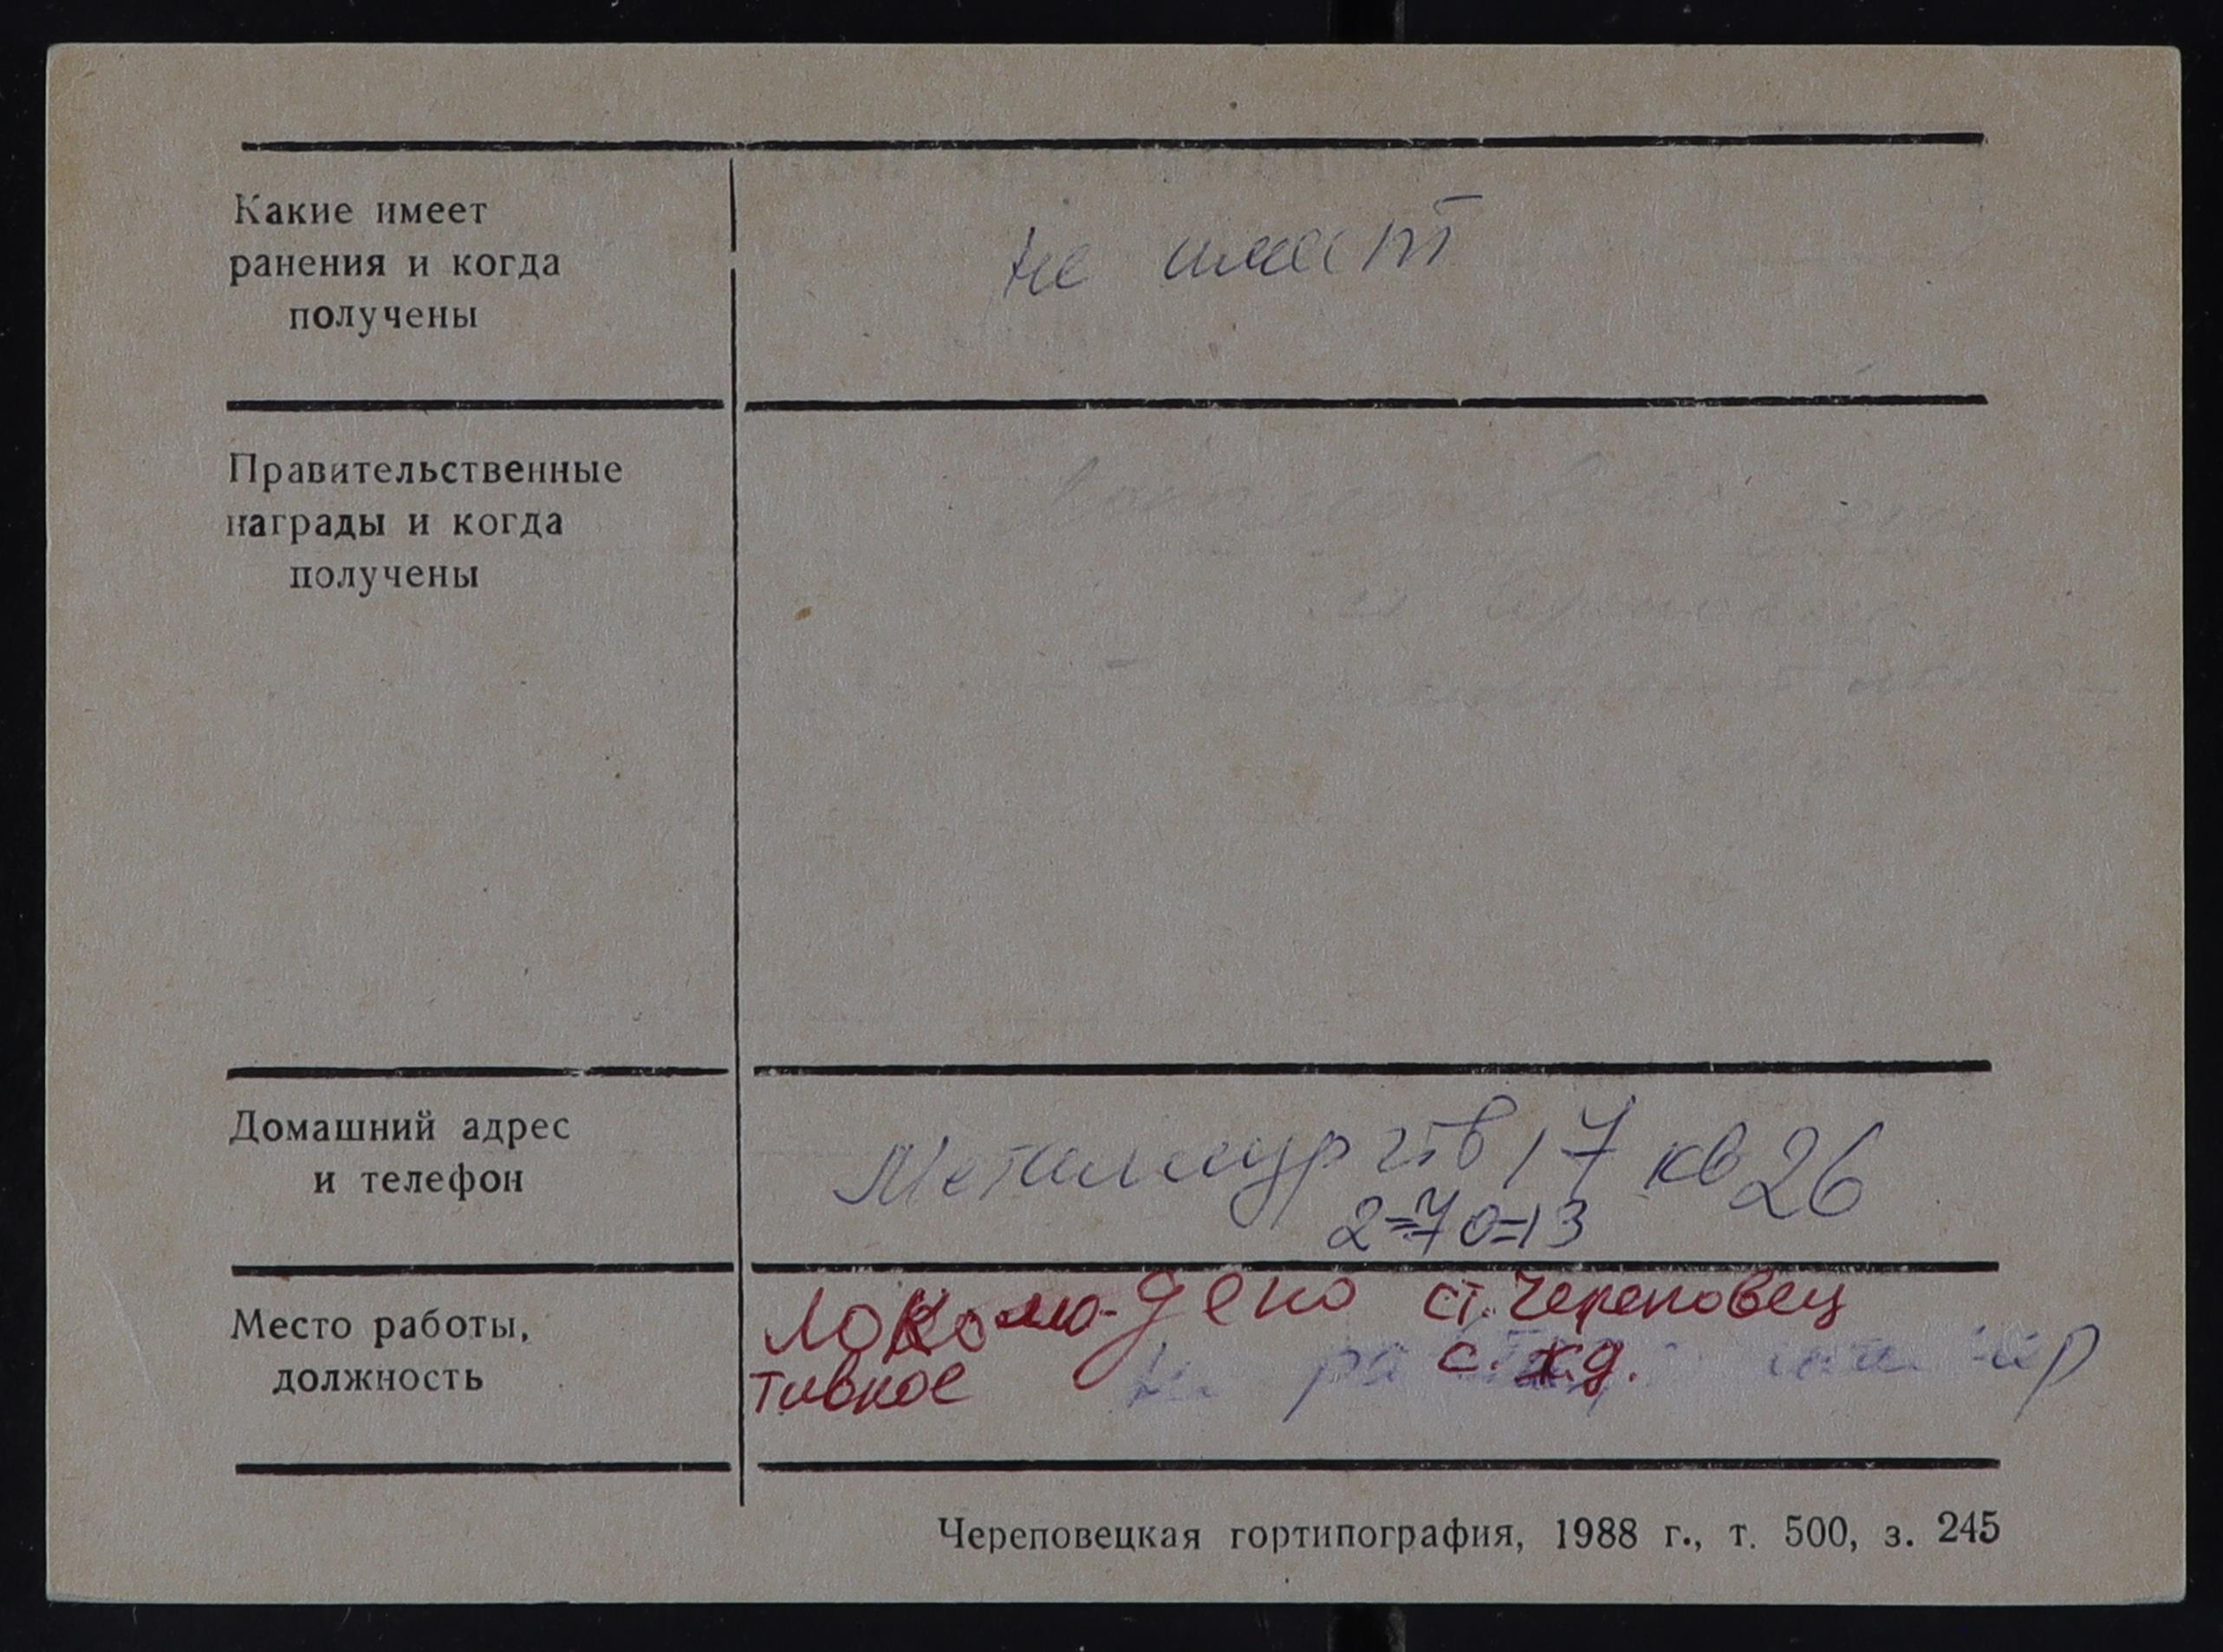 Какие имеет
ранения и когда
получены
не имеет
Правительственные
награды и когда
получены
Домашний адрес
и телефон
Металлургов 17 кв 26
2=70=13
Место работы,
должность
Локомо- депо ст. Череповец
тивное с. ж.д.
Череповецкая гортипография, 1988 г., т. 500, з. 245